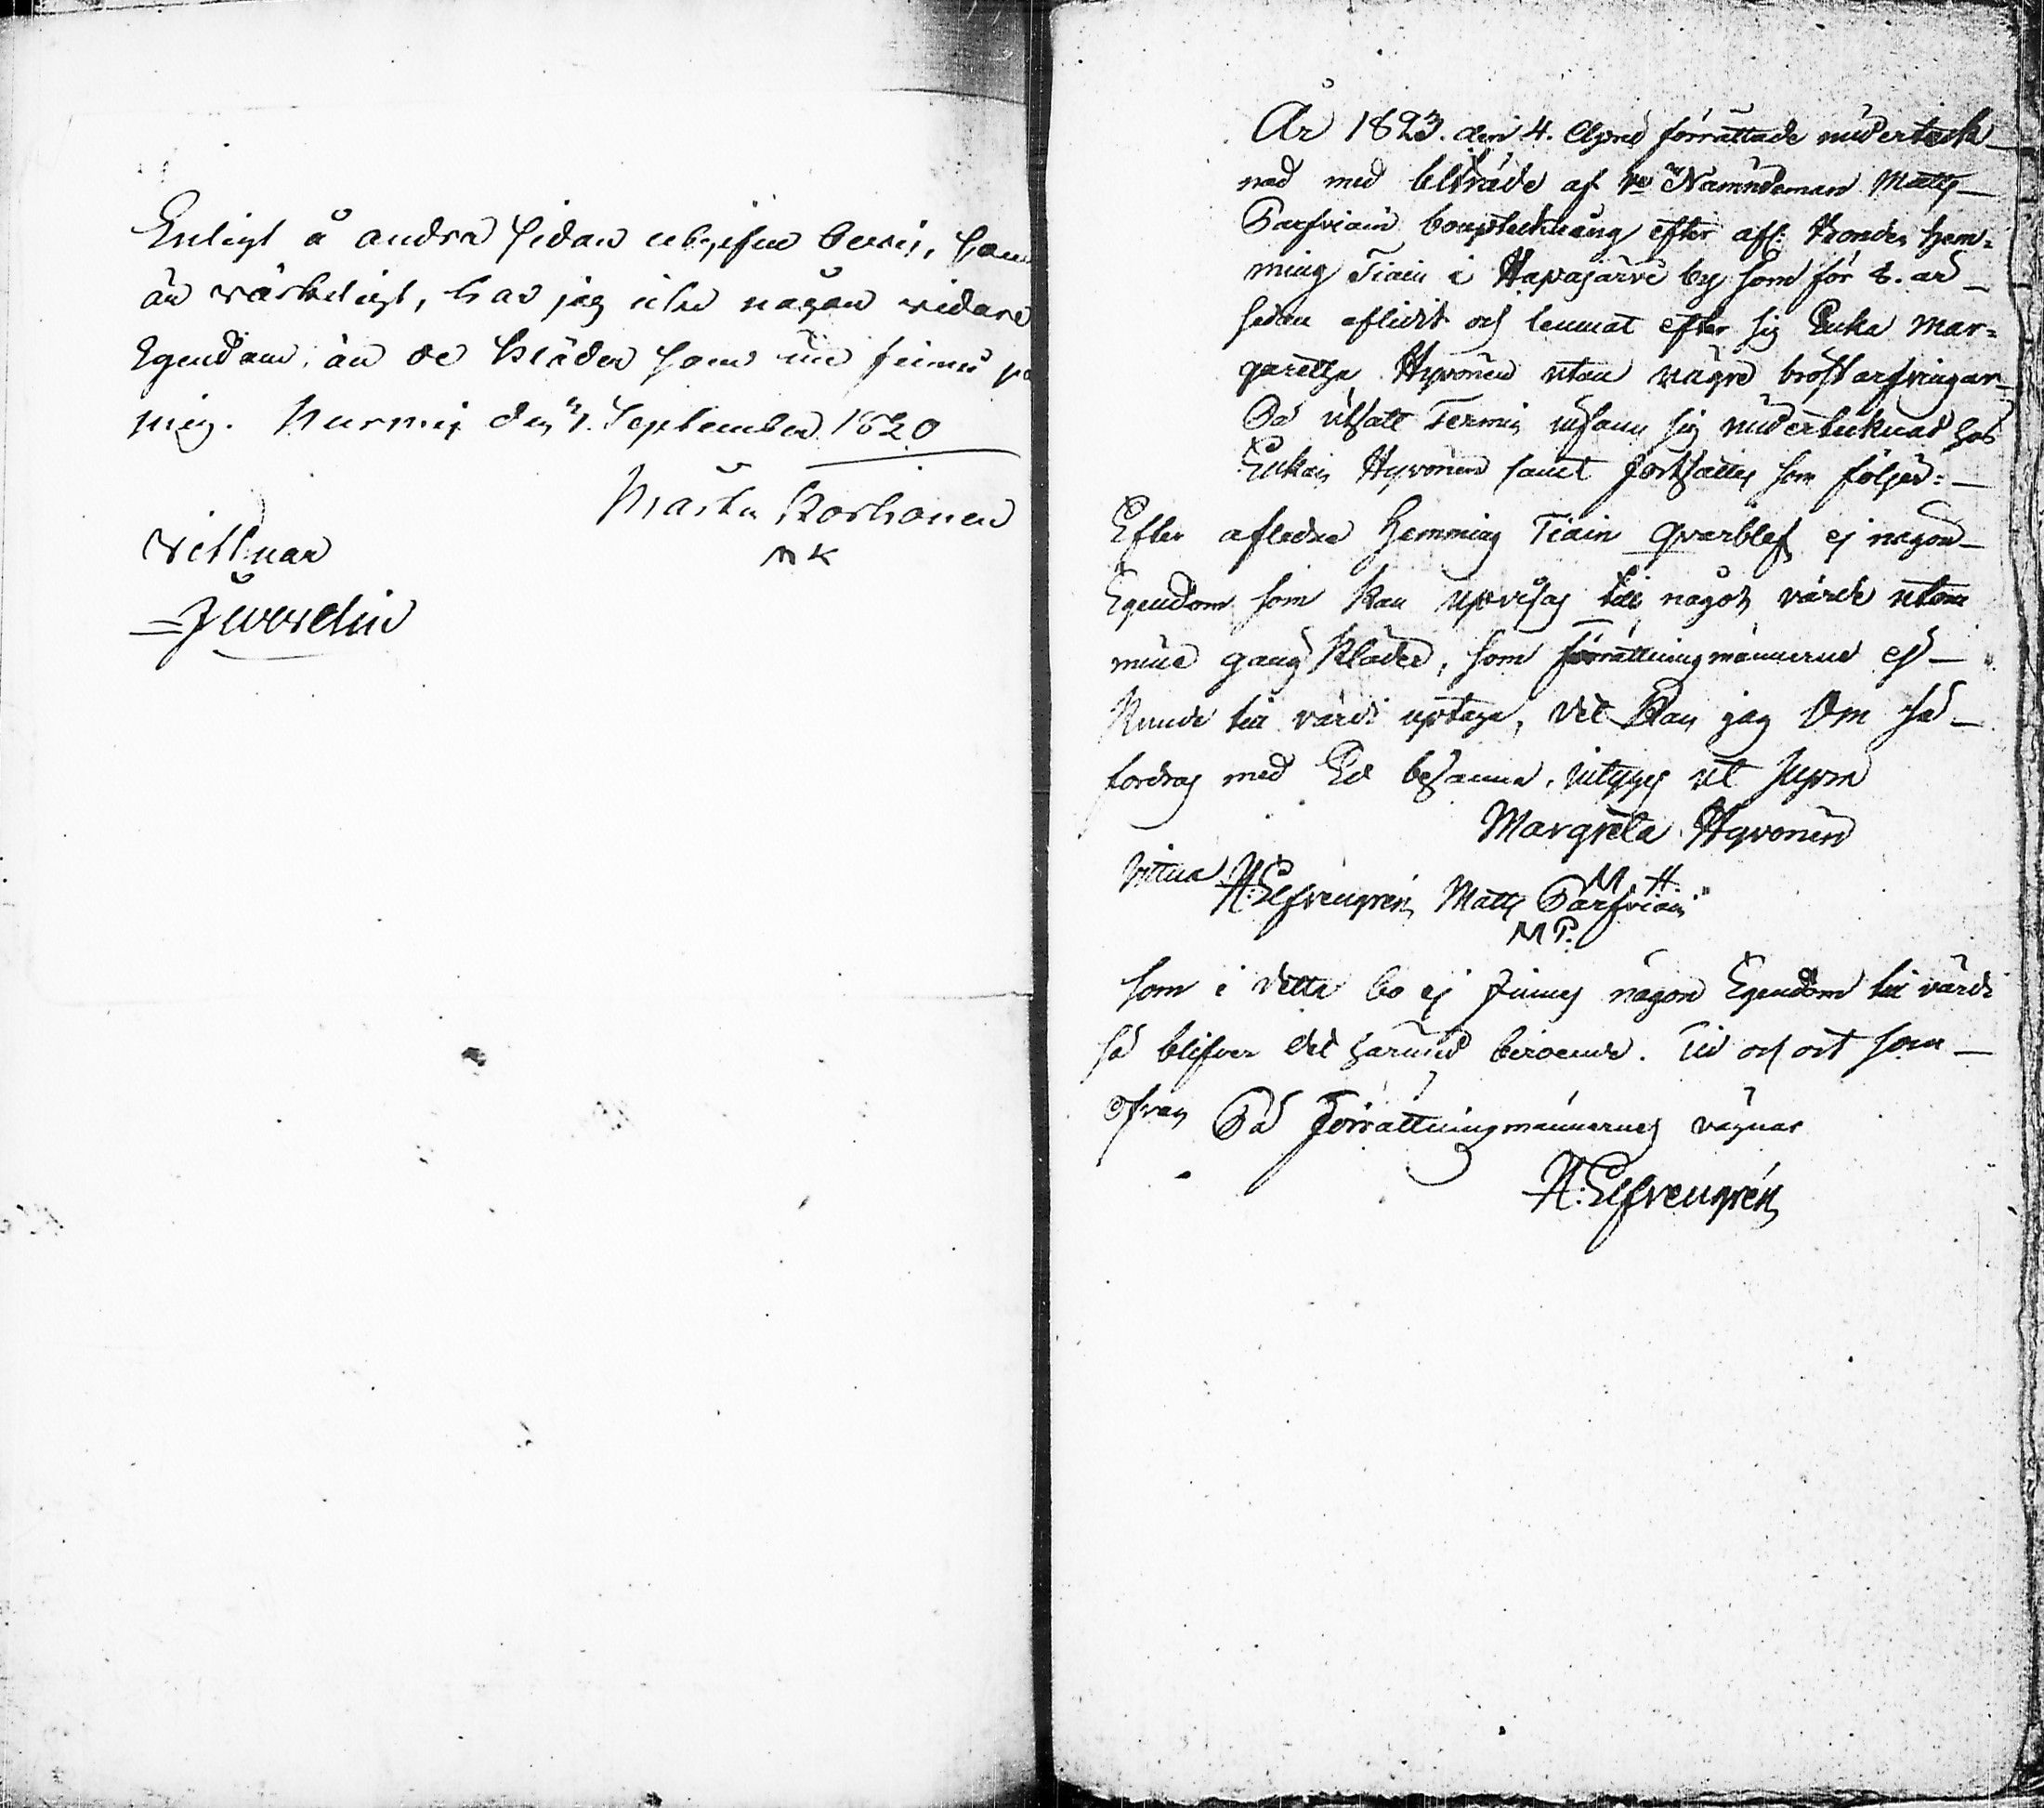 Enligt å andra sidan utgifne bevis, som
är värkeligt, har jag icke någon vidare
Egendom, än de kläder som nu finns på
mig. Nurmis den 4. September 1820
Märta Korhonen
M K
Vittnar
J Wæselin
År 1823. den 4. April förrättade underteck
nad med biträde af Nämndeman Matts
Parfviain bouptekning efter afl: Bonden Hem=
ming Tiain i Hapajärvi by som för 8. år
sedan aflidit och lemnat efter sig Enka Mar=
garetha Hyvönen utan någre bröstarfvingar
På utsatt Termin infann sig undertecknad hos
Enkan Hyvönen samt fortsattes som följer:
Efter afledne Hemming Tiain qvarblef ej någon
Egendom som kan upvisas till något värde utom
mine gång kläder, som förrättningmännerne ej
kunde till värde uptaga, det kan jag Om så
fordras med Ed besanna, intyges ut supra
Margreta Hyvönen
M H
Vittna H: Elfvengrén Matts Parfviain
M P.
Som i detta bo ej finnes någon Egendom till värde
så blifver det härmed beroende. Tid och ort som
ofvan På Förrättningmännernes vägnar
H: Elfvengrén